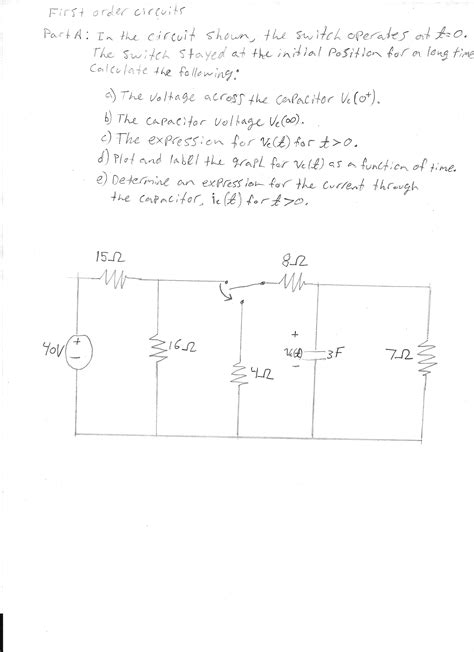 First order circuits
Part A: In the circuit shown, the switch operates at t=0.
The switch stayed at the initial position for a long time
Calculate the following:
a) The voltage across the capacitor Vc(0⁺).
b) The capacitor voltage Vc(∞).
c) The expression for Vc(t) for t>0.
d) Plot and labll the graph for Vc(t) as a function of time.
e) Determine an expression for the current through
the capacitor, ic(t) for t>0.
15Ω 8Ω
40V + - 16Ω 4Ω + Vc(t) - 3F 7Ω